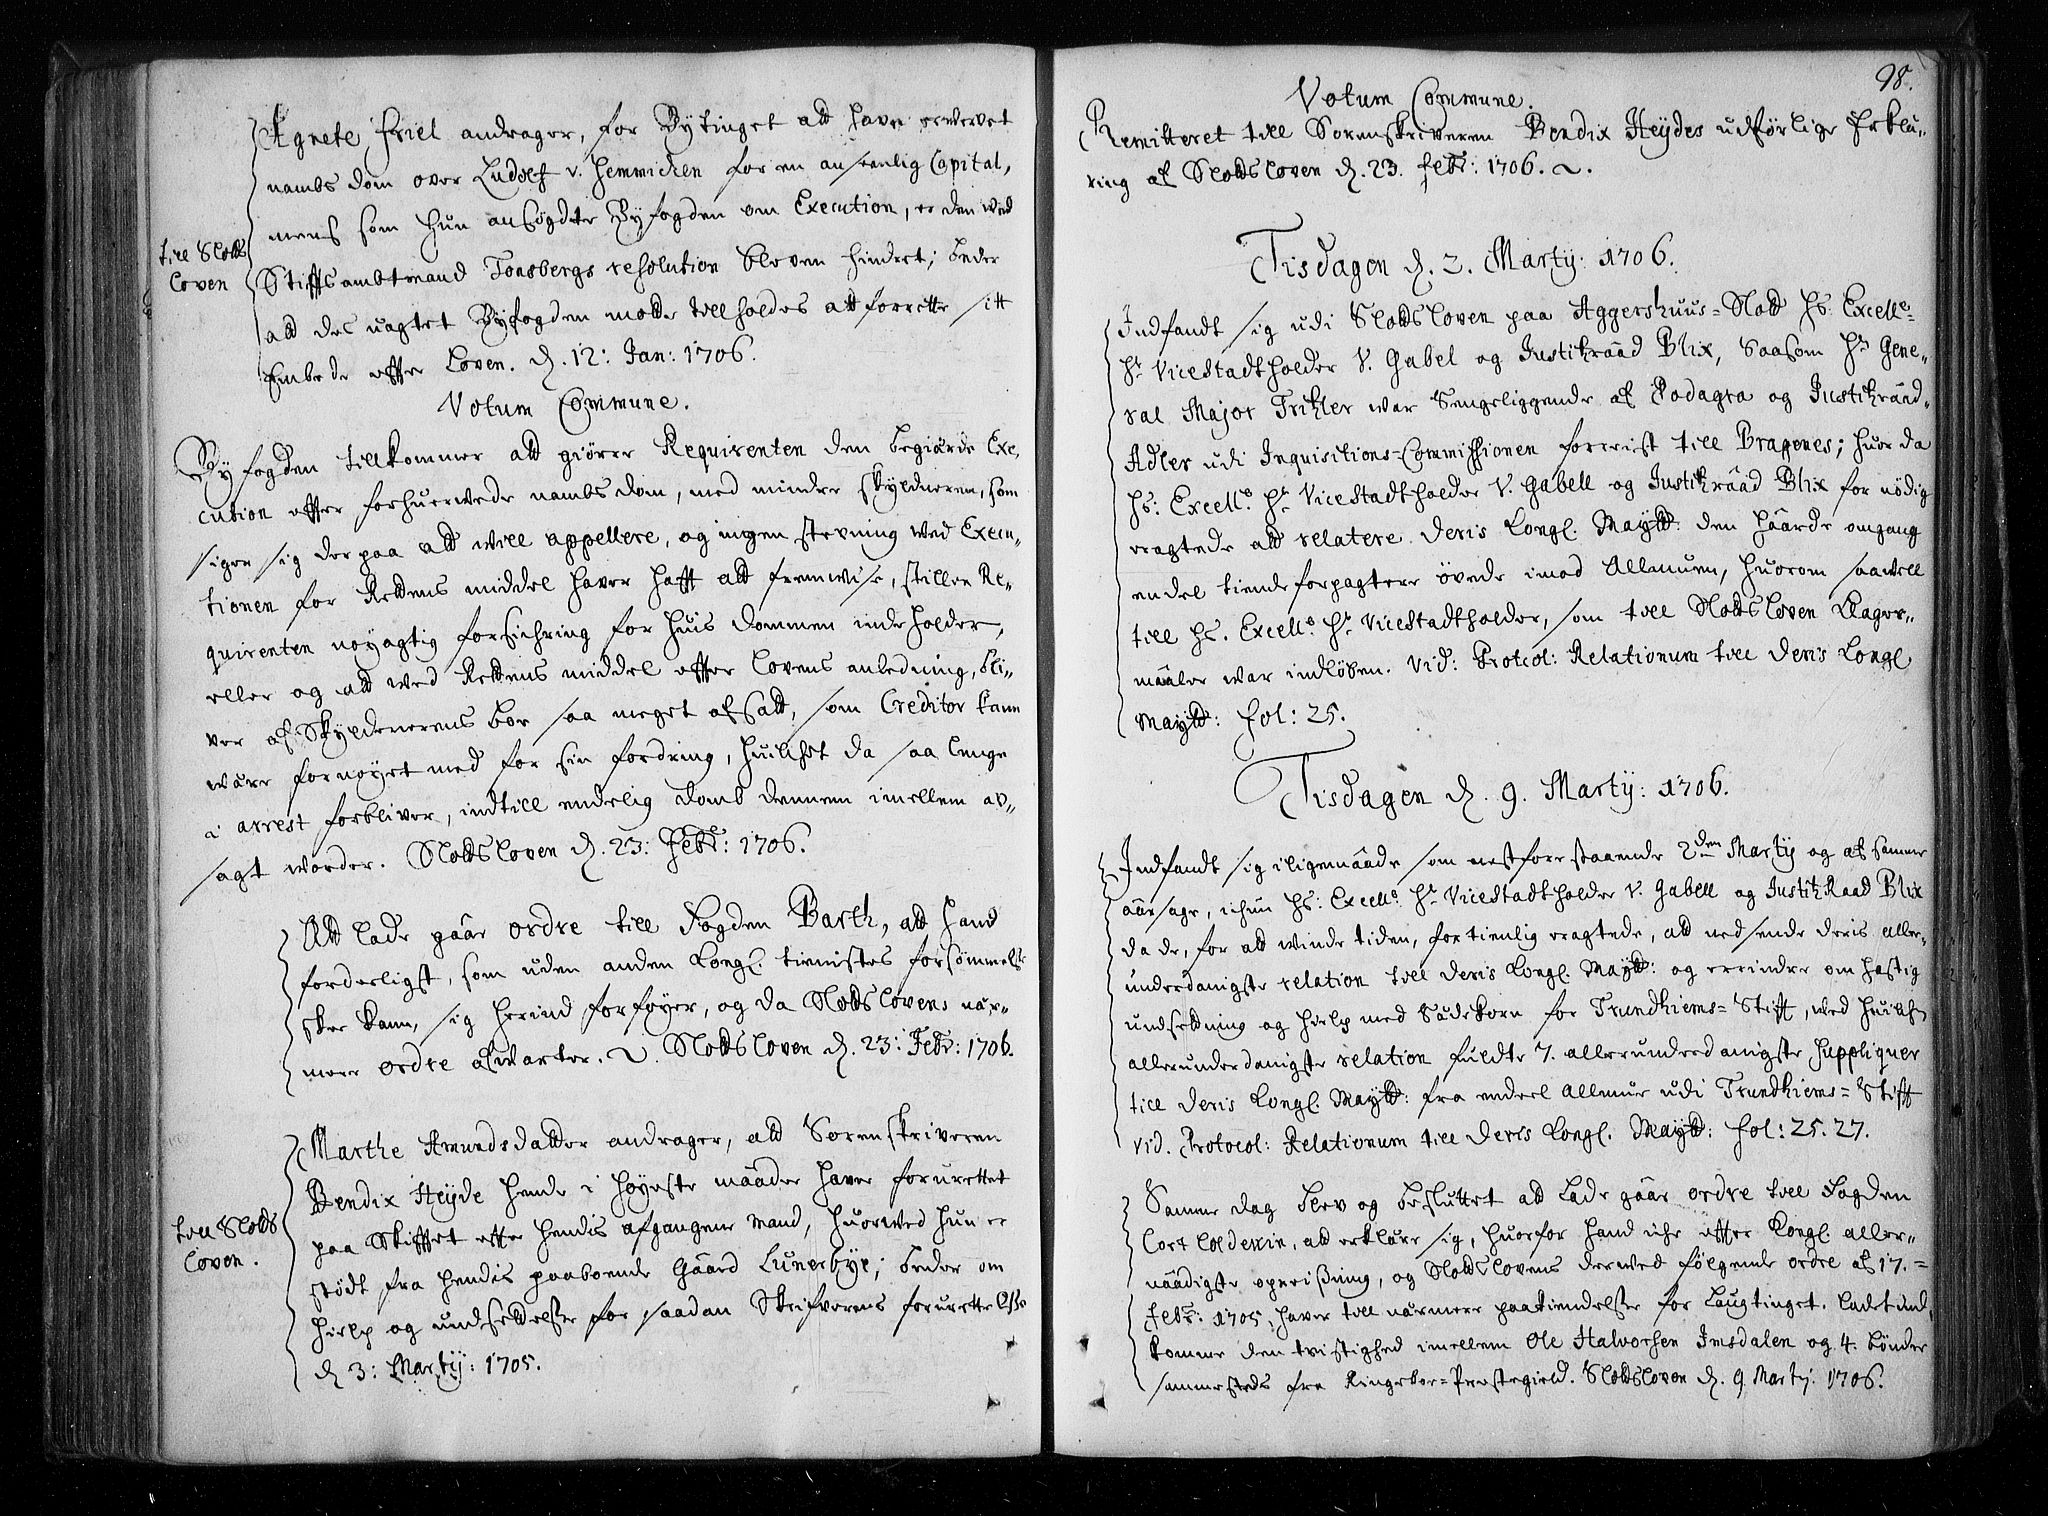 Agnete Friel andrager, for Bytinget att have erwervet
nambs dom over Ludolf v. Hemmichen for en anseenlig Capital,
mens som hun ansøgdte Byfogden om Execution, er den wed
till Slotts
Loven
Stiffsambtmand Tonsbergs resolution bleven hindret; beder
att des uagtet Byfogden motte tilholdes att forrette sitt
Embede effter Loven. d. 12: Jan: 1706.
Votum Commune.
Byfogden tillkommer att giørre Requirenten den begiærde Exe,,
cution effter forhuerwede nambs dom, med mindre skyldneren, som
siger sig der paa att will appellere, og ingen stevning wed Execu,,
tionen for Rettens middel haver hafft att fremwise, stiller Re,,
quirenten nøyagtig forsichring for huis dommen indeholder,
eller og att wed Rettens middel effter lovens anledning, bli,,
ver af Skyldnerens boe saa meget afsatt, som Creditor kann
wære fornøyet med for sin fordring, huilchet da saa lenge
i arrest forbliver, indtill endelig domb dennem imellem af,,
sagt worder. Slottsloven d. 23: Febr: 1706.
Att lade gaar ordre till Fogden Barth, att hand
forderligst, som uden anden Kongl. tienistes forsømmelse
skee kann, sig herind forføyer, og da Slottslovens nær,,
mere ordre afwarter. Slottsloven d. 23: Febr: 1706.
Marthe Amundsdatter andrager, att Sorenskriveren
Bendix Heyde hende i høyeste maader haver forurettet
till Slotts
Loven.
paa Skifftet effter hendis afgangene mand, huorwed hun er
stødt fra hendis paaboende Gaard Lunerbye; beder om
hielp og undsettelse for saadan Skrifverens forurettelse
d 3: Martij: 1705.
98.
Votum Commune.
Remitteret till Sorenskriveren Bendix Heydes udførlige Erklæ,,
ring af Slottsloven d. 23. febr: 1706.
Tisdagen d. 2. Martij: 1706.
Indfandt sig udi Slottsloven paa Aggershuus=Slott Hs: Excell:
Hr. ViceStadtholder V. Gabel og Justitzraad Blix, saasom Hr Gene,,
ral Major Tritzler war Sengeliggende af Podagra og Justitzraad
Adler udi Inquisitions=Commissionen forreist till Bragenes; huor da
Hs: Excell: Hr ViceStadtholder V. Gabell og Justitzraad Blix for nødig
eragtede att relatere Deris Kongl. Maytt: den haarde omgang
endel tiende forpagtere øvede imod Allmuen, huorom saawell
till Hs. Excell: Hr. ViceStadtholder, som till Slottsloven Klager,,
maaler war indløben. Vid: Protcol: Relationum till Deris Kongl
Maytt: fol: 25.
Tisdagen d. 9. Martij: 1706.
Indfandt sig i ligemaade som nestforestaaende 2den Martij og af samme
aarsage, ichun Hs: Excell: Hr ViceStadtholder V. Gabell og JustitzRaad Blix
da de, for att winde tiden, fortienlig eragtede, att nedsende deris aller,,
underdanigste relation till Deris Kongl. Maytt: og errindre om hastig
undsettning og hielp med Sædekorn for Trundhiems=Stifft, wed huilchen
allerunderdanigste relation fuldte 7. allerunderdanigste suppliquer
till Deris Kongl. Maytt: fra endeel Allmue udi Trundhiems=Stifft
Vid. Protocol: Relationum till Deris Kongl. Maytt: fol: 25. 27.
Samme dag blev og besluttet att lade gaar ordre till Fogden
Cort Coldevin, att erklære sig, huorfor hand iche effter Kongl. aller,,
naadigste, og Slottslovens derwed følgende ordre af 17.
febr: 1705, haver till nærmere paakiendelse for Laugtinget, ladet ind
komme den tvistighed imellem Ole Halvorsen Imsdalen og 4. bønder
sammesteds fra Ringeboe=Prestegield. Slottsloven d. 9 Martij: 1706.